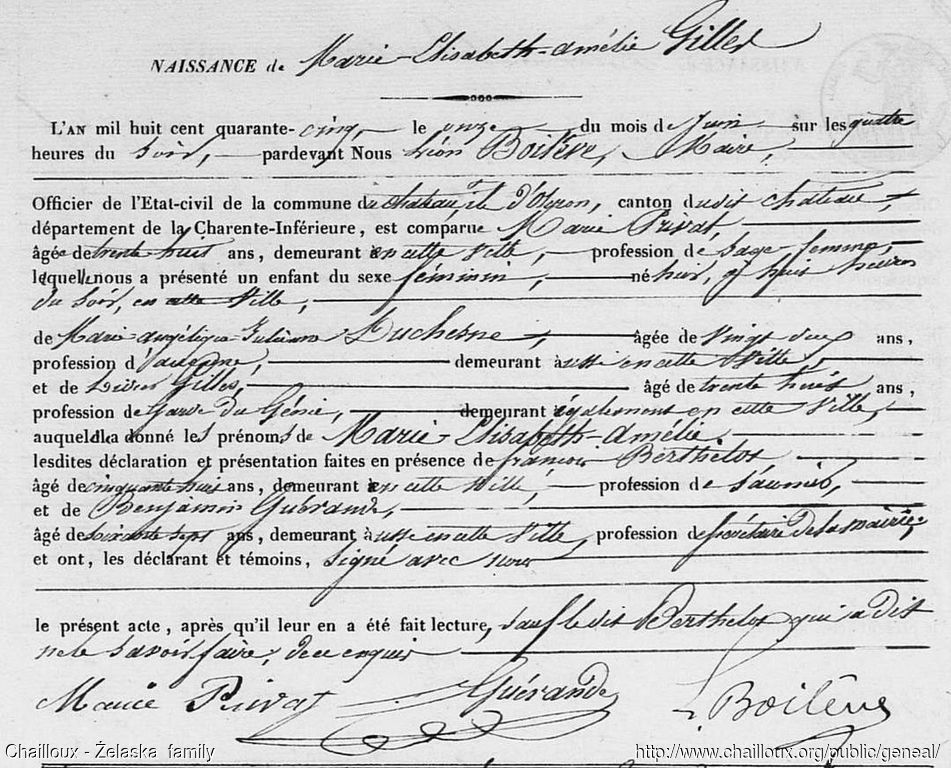 NAISSANCE de Marie-Elisabeth-Amélie Gilles
L'AN mil huit cent quarante-cinq, le onze du mois de Juin sur les quatre
heures du Soir, pardevant Nous Léon Boilève, Maire,
Officier de l'Etat-civil de la commune du chateau, île d'Oleron, canton dudit chateau,
département de la Charente-Inférieure, est comparue Marie Privat,
âgée de trente huit ans, demeurant en cette Ville, profession de Sage femme,
laquelle nous a présenté un enfant du sexe féminin, né hier, à huit heures
du Soir, en cette Ville,
de Marie Angélique Julienne Duchesne, âgée de vingt deux ans,
profession d' demeurant aussi en cette Ville,
et de Gilles, âgé de trente huit ans,
profession de Garde du Génie, demeurant également en cette Ville,
auquel elle a donné les prénoms de Marie-Elisabeth-Amélie.
lesdites déclaration et présentation faites en présence de françois Berthelot
âgé de cinquante huit ans, demeurant en cette Ville, profession de Saunier,
et de Benjamin Guérande,
âgé de soixante sept ans, demeurant aussi en cette Ville, profession de Secrétaire de la mairie;
et ont, les déclarant et témoins, signé avec nous
le présent acte, après qu'il leur en a été fait lecture, sauf le dit Berthelot qui a dit
ne le savoir faire, de ce enquis
Marie Privat Guérande L. Boilève
Chailloux - Żelaska family http://www.chailloux.org/public/geneal/